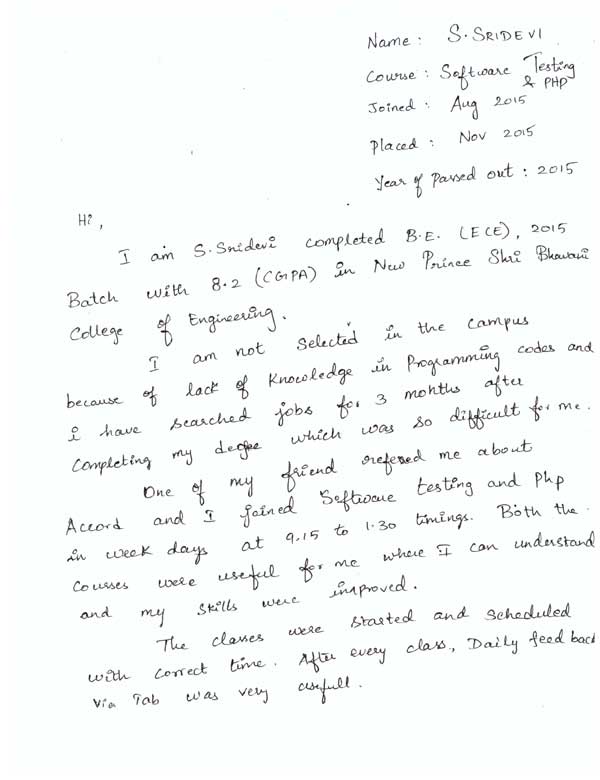 Name : S.SRIDEVI
Course : Software Testing
& PHP
Joined : Aug 2015
Placed : Nov 2015
Year of Passed out : 2015
Hi,
I am S.Sridevi completed B.E. (ECE), 2015
Batch with 8.2 (CGPA) in New Prince Shri Bhavani
College of Engineering.
I am not Selected in the campus
because of lack of Knowledge in Programming codes and
i have searched jobs for 3 months after
Completing my degree which was so difficult for me.
One of my friend refered me about
Accord and I joined Software testing and Php
in week days at 9.15 to 1.30 timings. Both the
Courses were useful for me where I can understand
and my Skills were improved.
The classes were Started and Scheduled
with correct time. After every class, Daily feed back
Via Tab was very usefull.